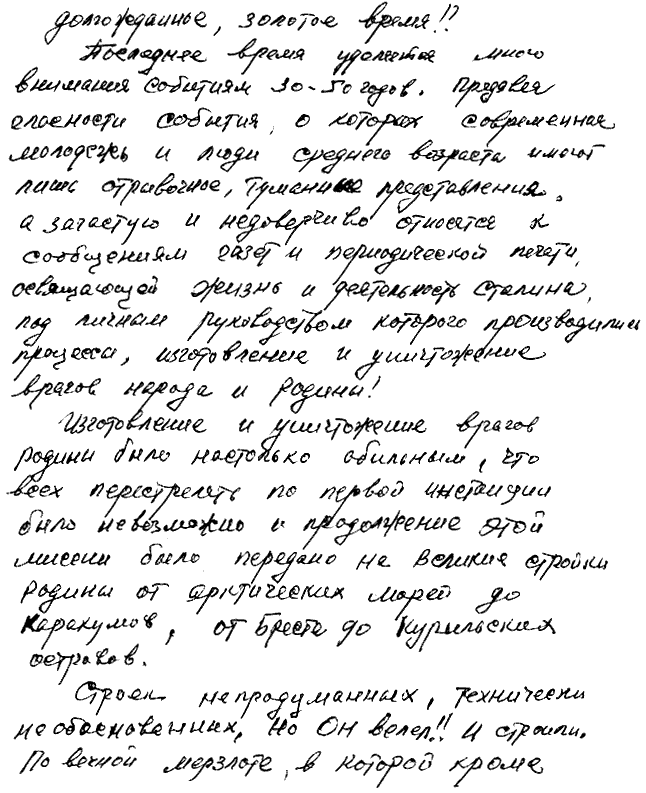 долгожданное, золотое время!!
Последнее время уделяется много
внимания событиям 30-50 годов. Предавая
гласности события, о которых современная
молодежь и люди среднего возраста имеют
лишь отрывочное, туманные представления,
а зачастую и недоверчиво относятся к
сообщениям газет и периодической печати,
освящающей жизнь и деятельность Сталина,
под личным руководством которого производились
процессы, изготовление и уничтожение
врагов народа и Родины!
Изготовление и уничтожение врагов
Родины было настолько обильным, что
всех перестрелять по первой инстанции
было невозможно и продолжение этой
миссии было передано на Великие стройки
Родины от арктических морей до
Каракумов, от Бреста до Курильских
островов.
Строек непродуманных, технически
необоснованных, Но Он велел!! И строили.
По вечной мерзлоте, в которой кроме